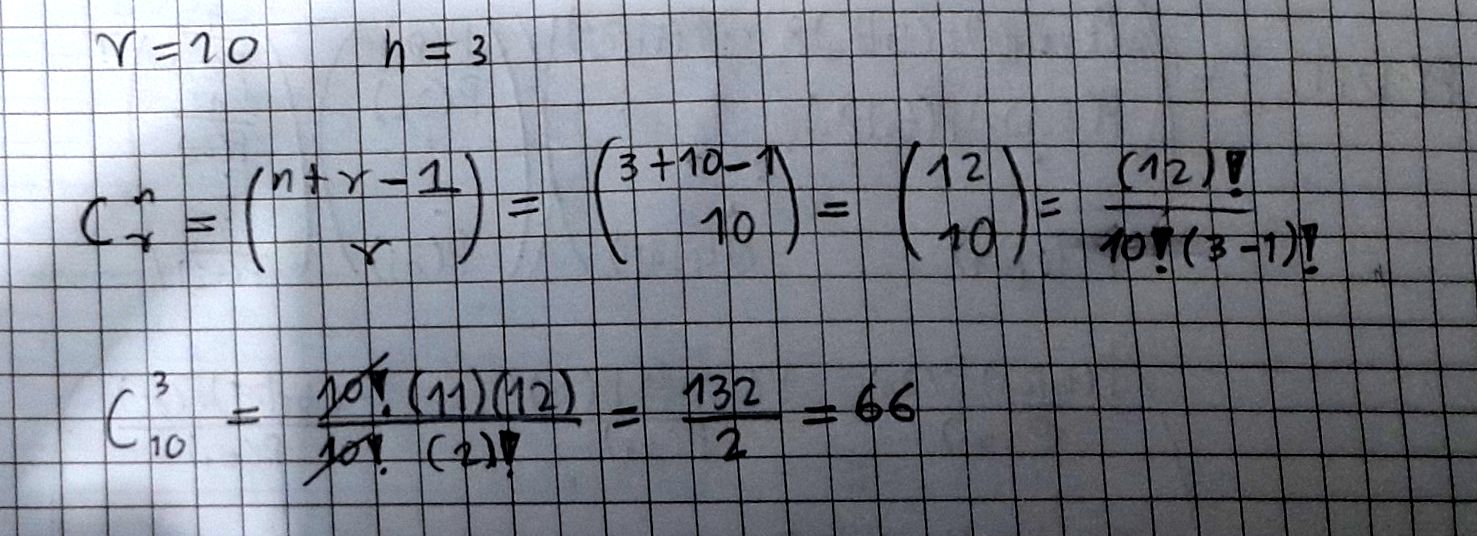 r = 10 n = 3
C^n_r = (n + r - 1 / r) = (3 + 10 - 1 / 10) = (12 / 10) = (12)! / 10! (3 - 1)!
C^3_10 = 10! (11)(12) / 10! (2)! = 132 / 2 = 66